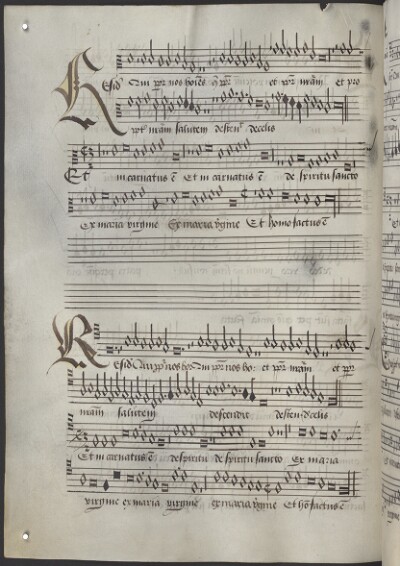 Resid Qui ppt nos hoīes et ppt nrām et pro
ppt nrām salutem descendit de celis
Et incarnatus ē Et incarnatus ē de spiritu sancto
Ex maria virgine Ex maria vgine Et homo factus ē
Resid Qui ppt nos ho Qui ppt nos ho et ppt nrām et ppt
nrām salutem descendit descendit de celis
Et incarnatus ē de spiritu de spiritu sancto Ex maria
virgine ex maria virgine ex maria vgine Et hō factus ē